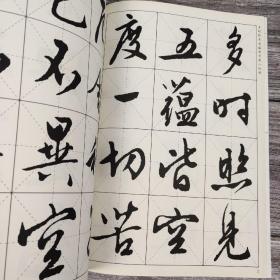 多时照见
五蕴皆空
度一切苦
不異空